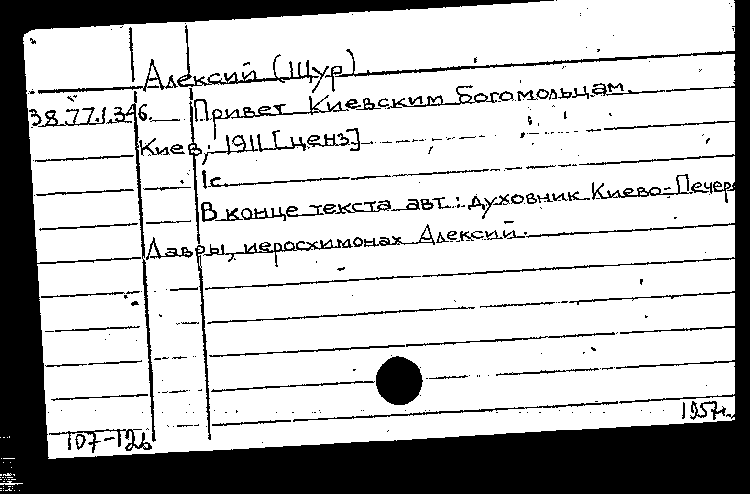 Алексий (Щур).
38.77.1.346. Привет Киевским богомольцам.
Киев, 1911 [ценз]
1с.
В конце текста авт.: духовник Киево-Печер
Лавры, иеросхимонах Алексий.
107-126
1957г.